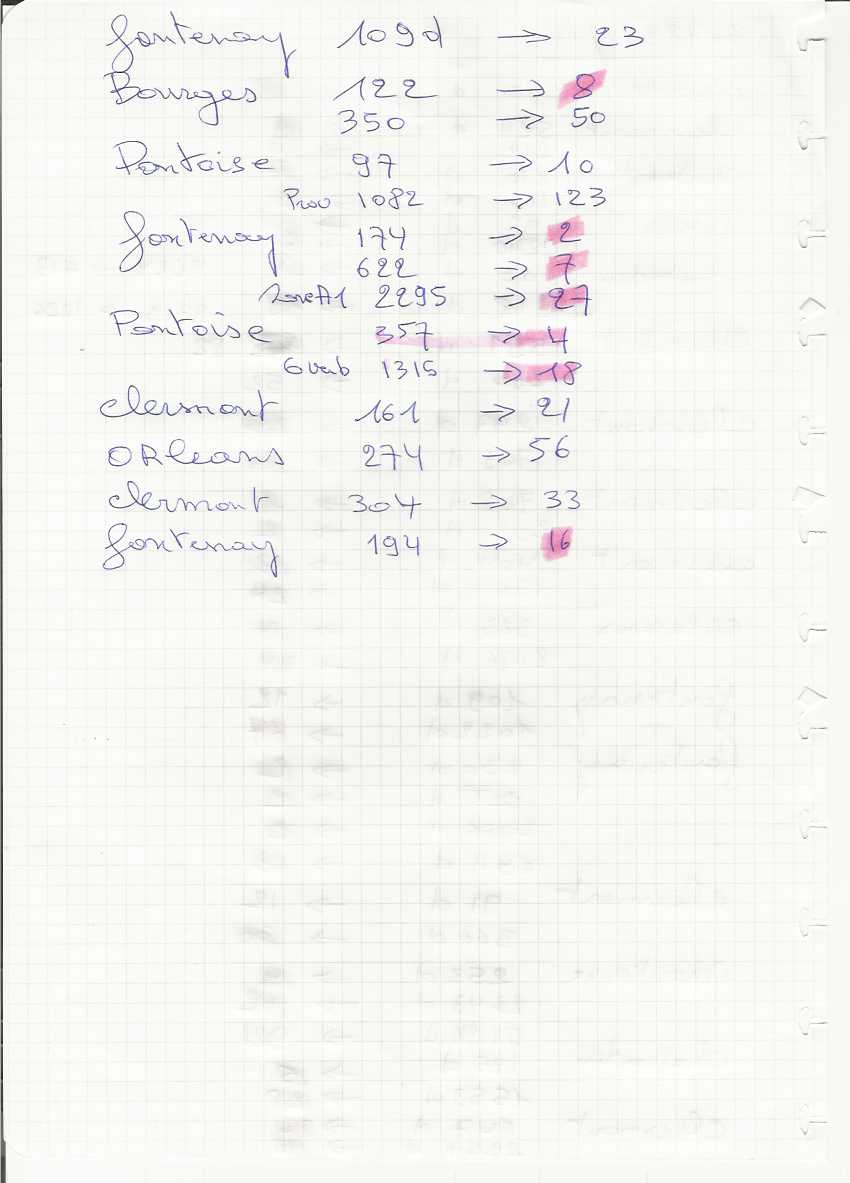 fontenay 109d → 23
Bourges 122 → 8
350 → 50
Pontoise 97 → 10
Prov 1082 → 123
fontenay 174 → 2
622 → 7
Zone A1 2295 → 27
Pontoise 357 → 4
6 1315 → 18
clermont 161 → 21
ORleans 274 → 56
clermont 304 → 33
fontenay 194 → 16